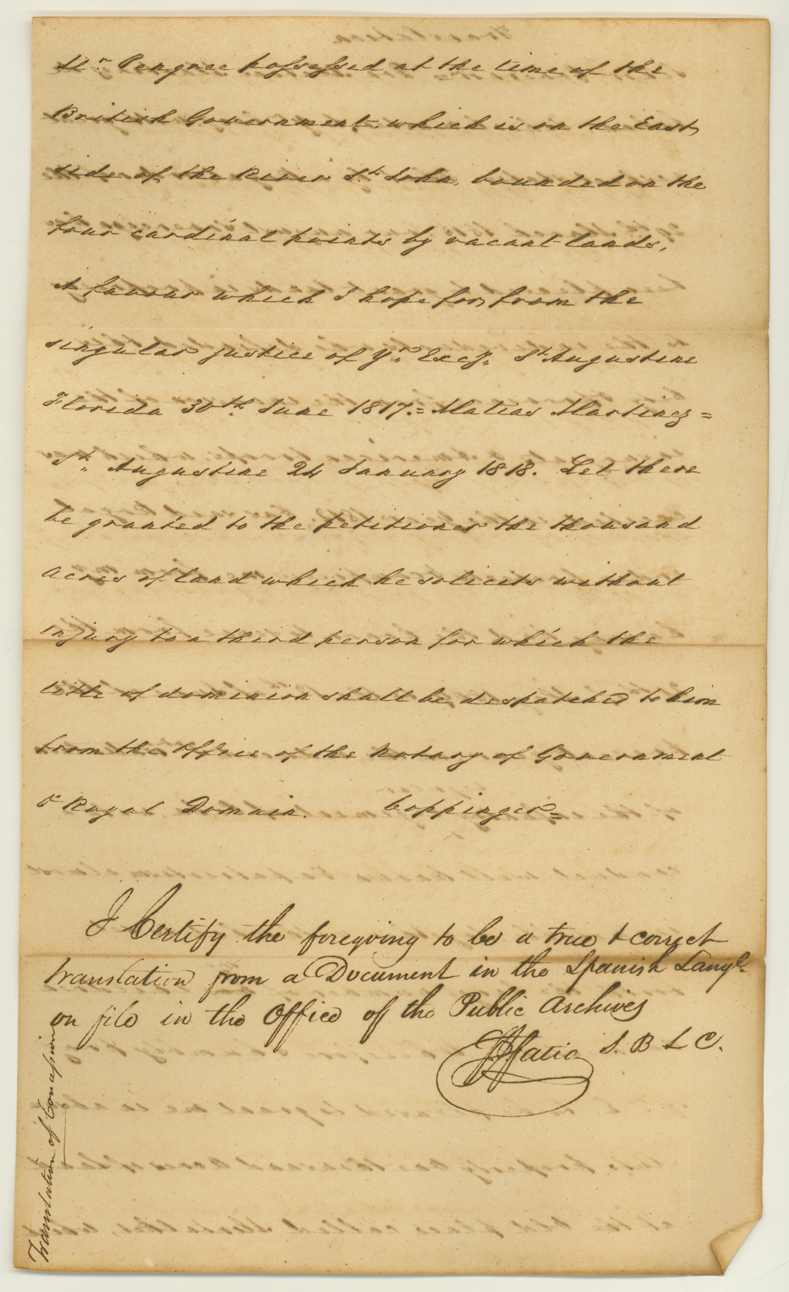 Mr. Pengree possessed at the time of the
British Government which is on the East
side of the River St. John, bounded on the
four cardinal points by vacant lands,
A favour which I hope for, from the
singular justice of Yr. Excy. St. Augustine
Florida 30th. June 1817.= Matias Martinez=
St. Augustine 24 January 1818. Let there
be granted to the petitioner the thousand
acres of land which he solicits without
injury to a third person for which the
title of dominion shall be despatched to him
from the Office of the Notary of Government
& Royal Domain. Coppinger=
I Certify the foregoing to be a true & correct
translation from a Document in the Spanish Lange.
on file in the Office of the Public Archives
S. B L C.
Translation of Concession